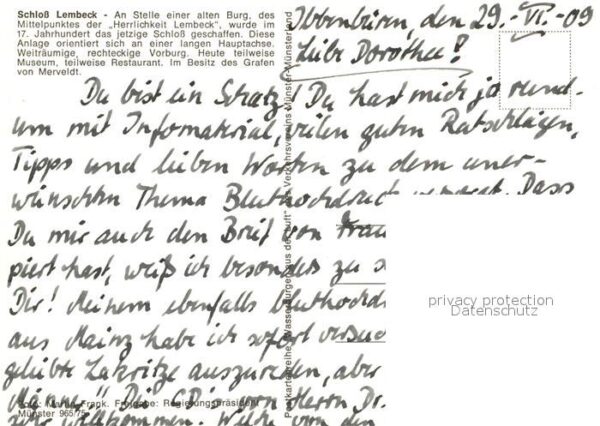 Schloß Lembeck - An Stelle einer alten Burg, des
Mittelpunktes der „Herrlichkeit Lembeck", wurde im
17. Jahrhundert das jetzige Schloß geschaffen. Diese
Anlage orientiert sich an einer langen Hauptachse.
Weiträumige, rechteckige Vorburg. Heute teilweise
Museum, teilweise Restaurant. Im Besitz des Grafen
von Merveldt.
Ibbenbüren, den 29.-VI.-09
Liebe Dorothee!
Du bist ein Schatz! Du hast mich ja rund-
um mit Infomaterial, vielen guten Ratschlägen,
Tipps und lieben Worten zu dem uner-
wünschten Thema Bluthochdruck versorgt. Dass
Du mir auch den Brief von Frau
piert hast, weiß ich besonders zu
Dir! Meinem ebenfalls bluthochd
aus Mainz habe ich sofort versuc
geliebte Lakritze auszureden, aber
Männer!! Die CD's von Herrn Dr.
willkommen. Welche von den
Foto: Martin Frank. Freigabe: Regierungspräsident
Münster 965/75
Postkartenreihe „Wasserburgen aus der Luft" des Verkehrsvereins Münster-Münsterland
privacy protection
Datenschutz